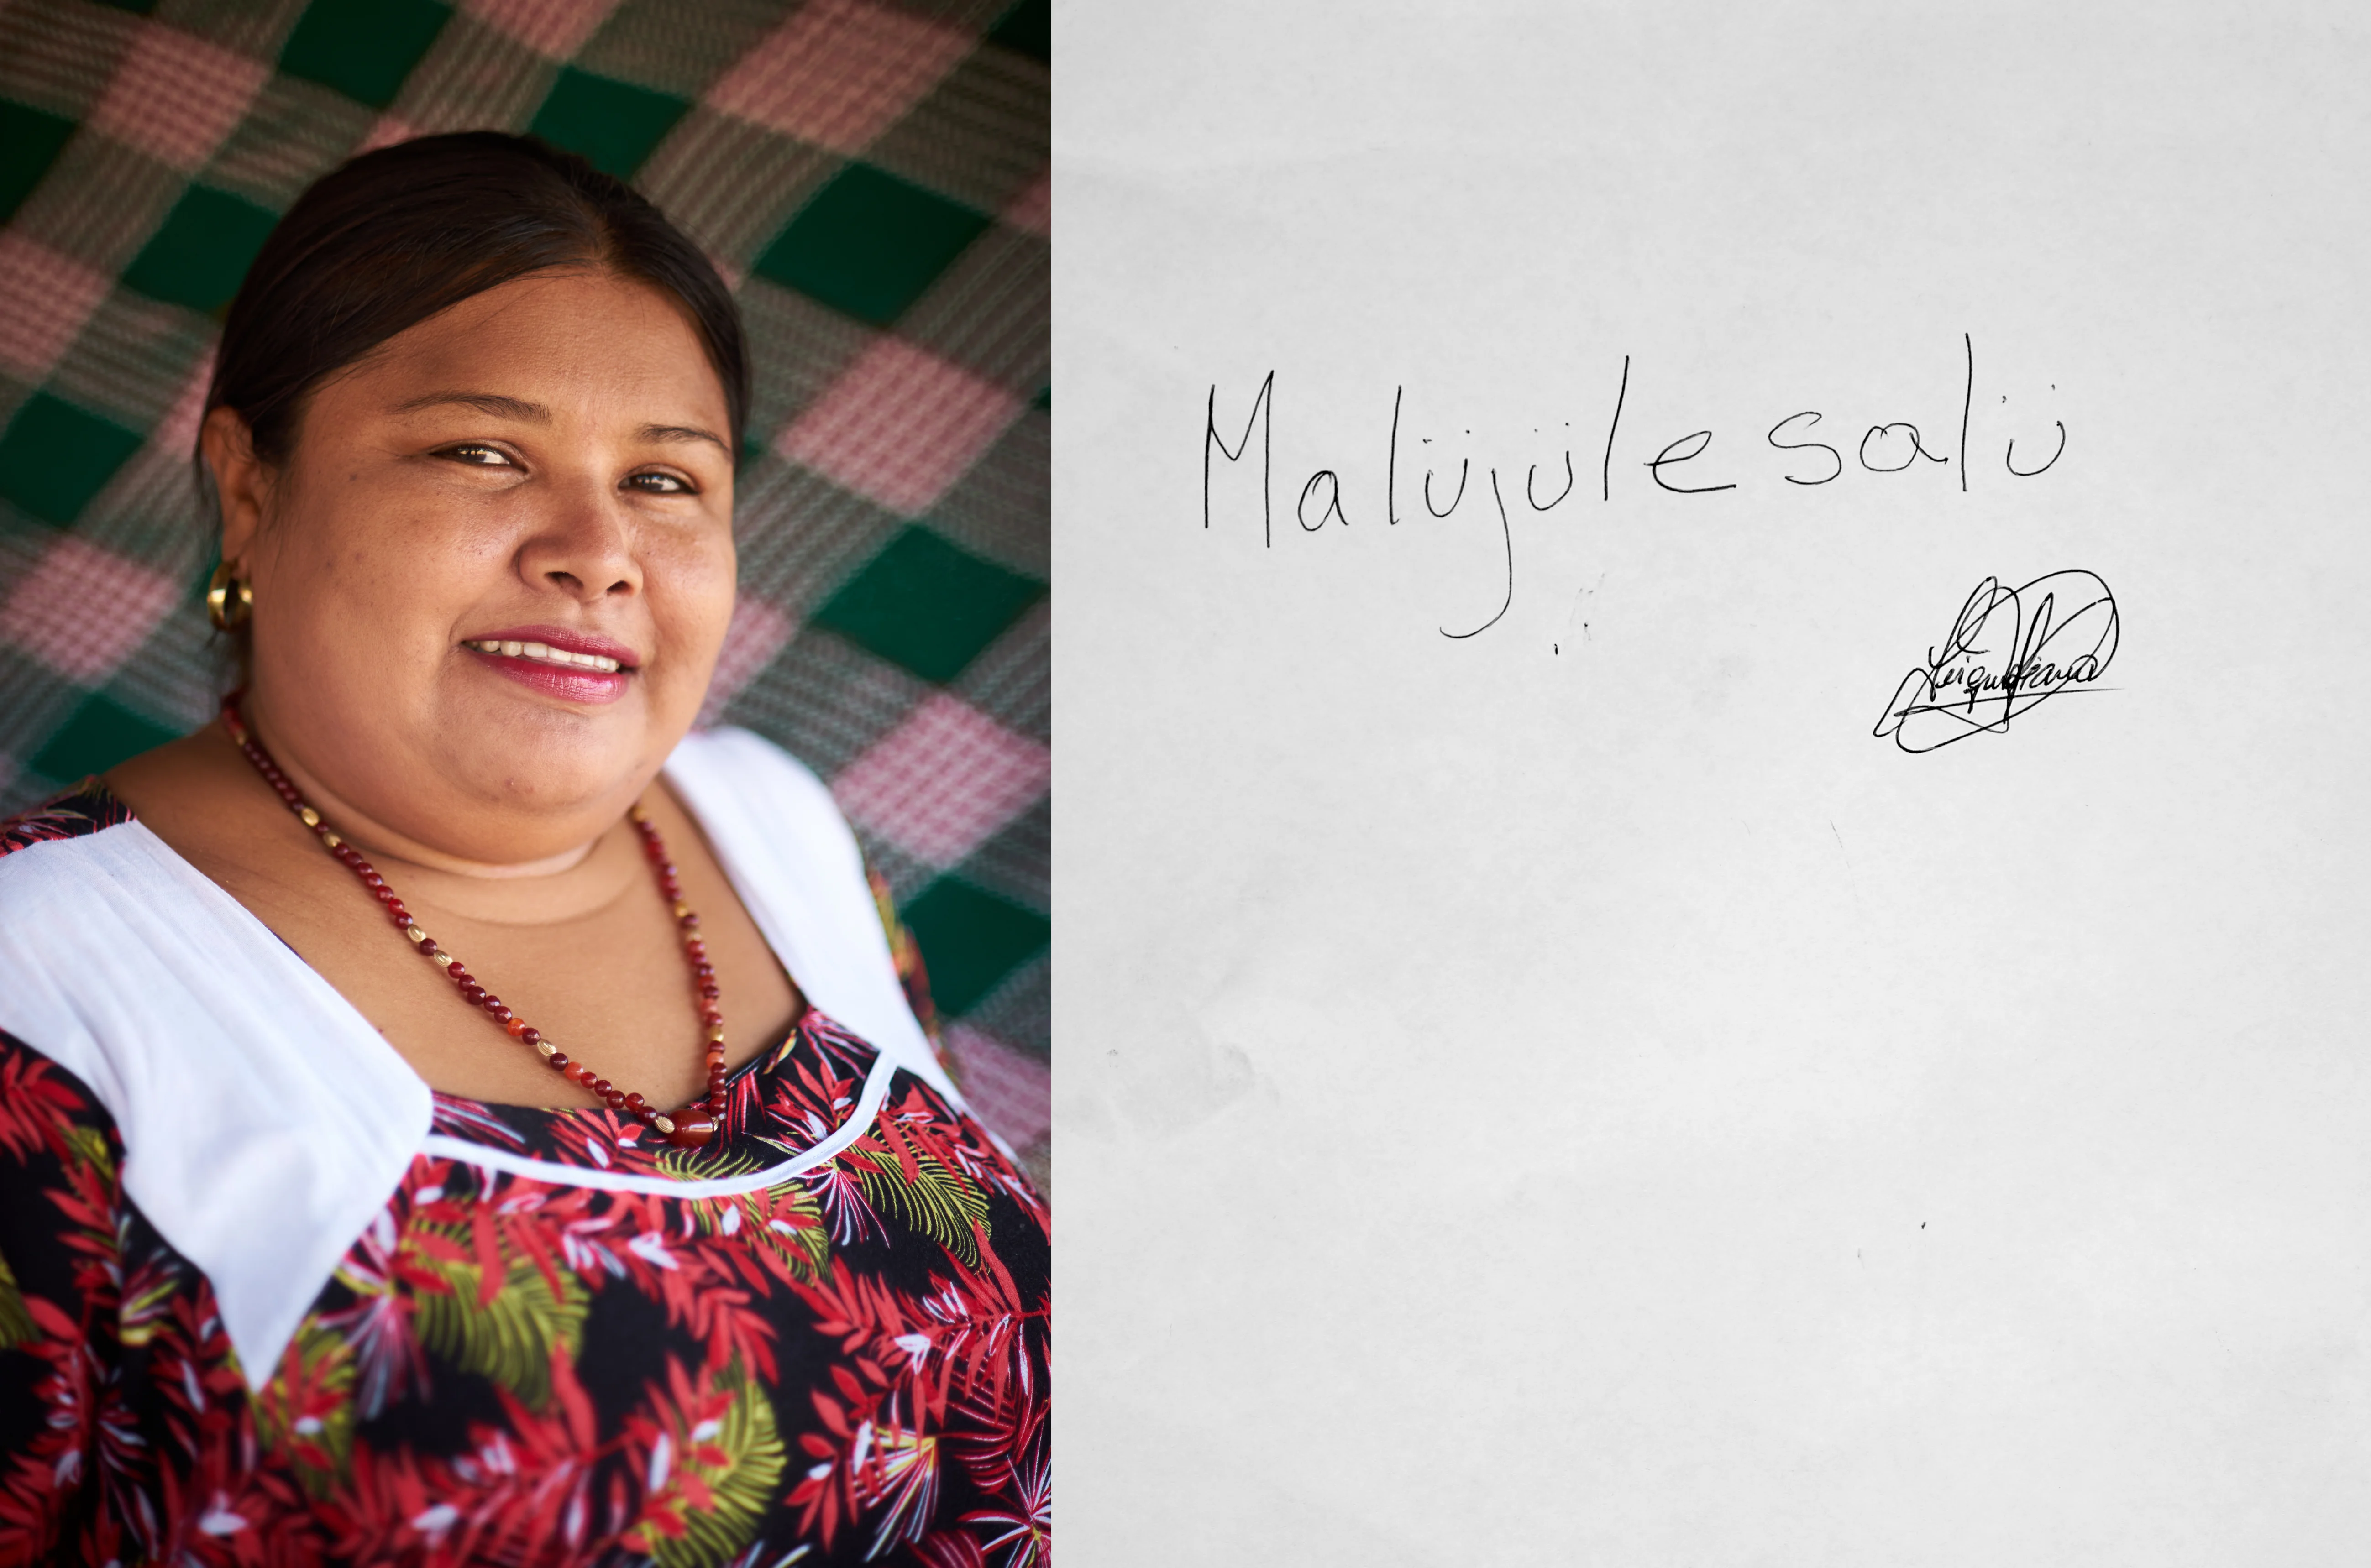 Malüjülesalü